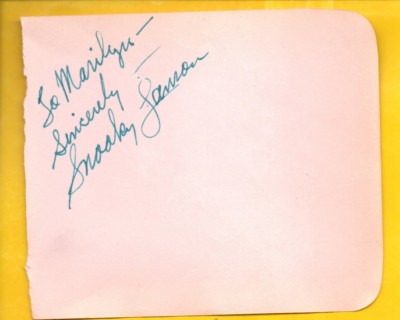 To Marilyn—
Sincerely—
Snooky Lanson